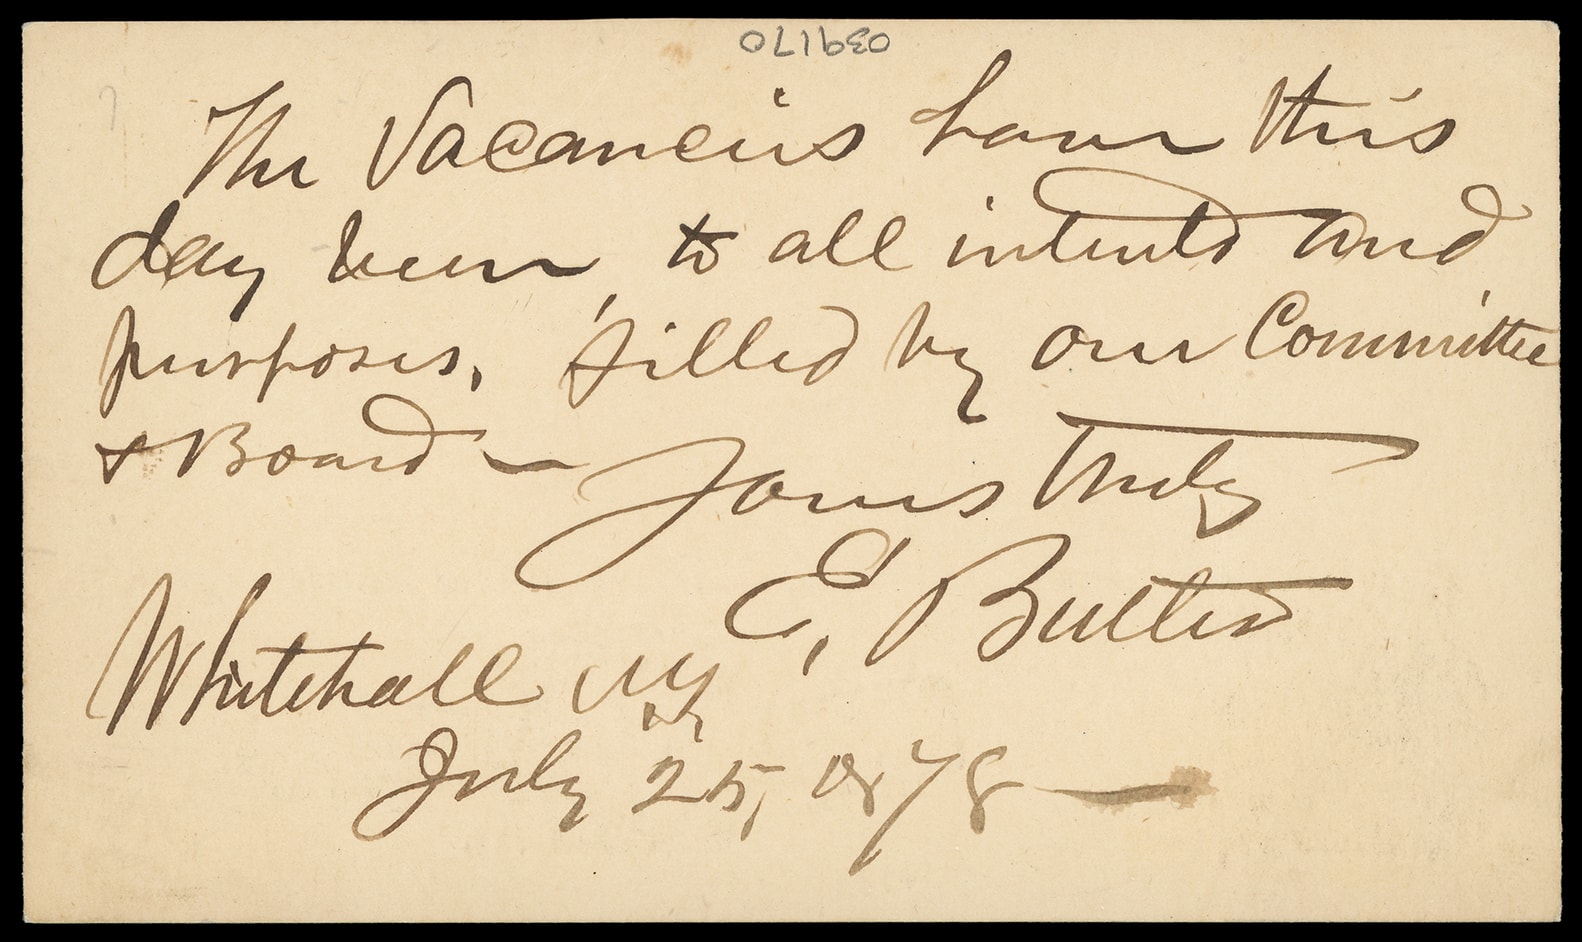 039170
The Vacancies have this
day been, to all intents and
purposes, filled by our Committee
& Board — Yours truly
E. Butler
Whitehall NY
July 25, 1878 —